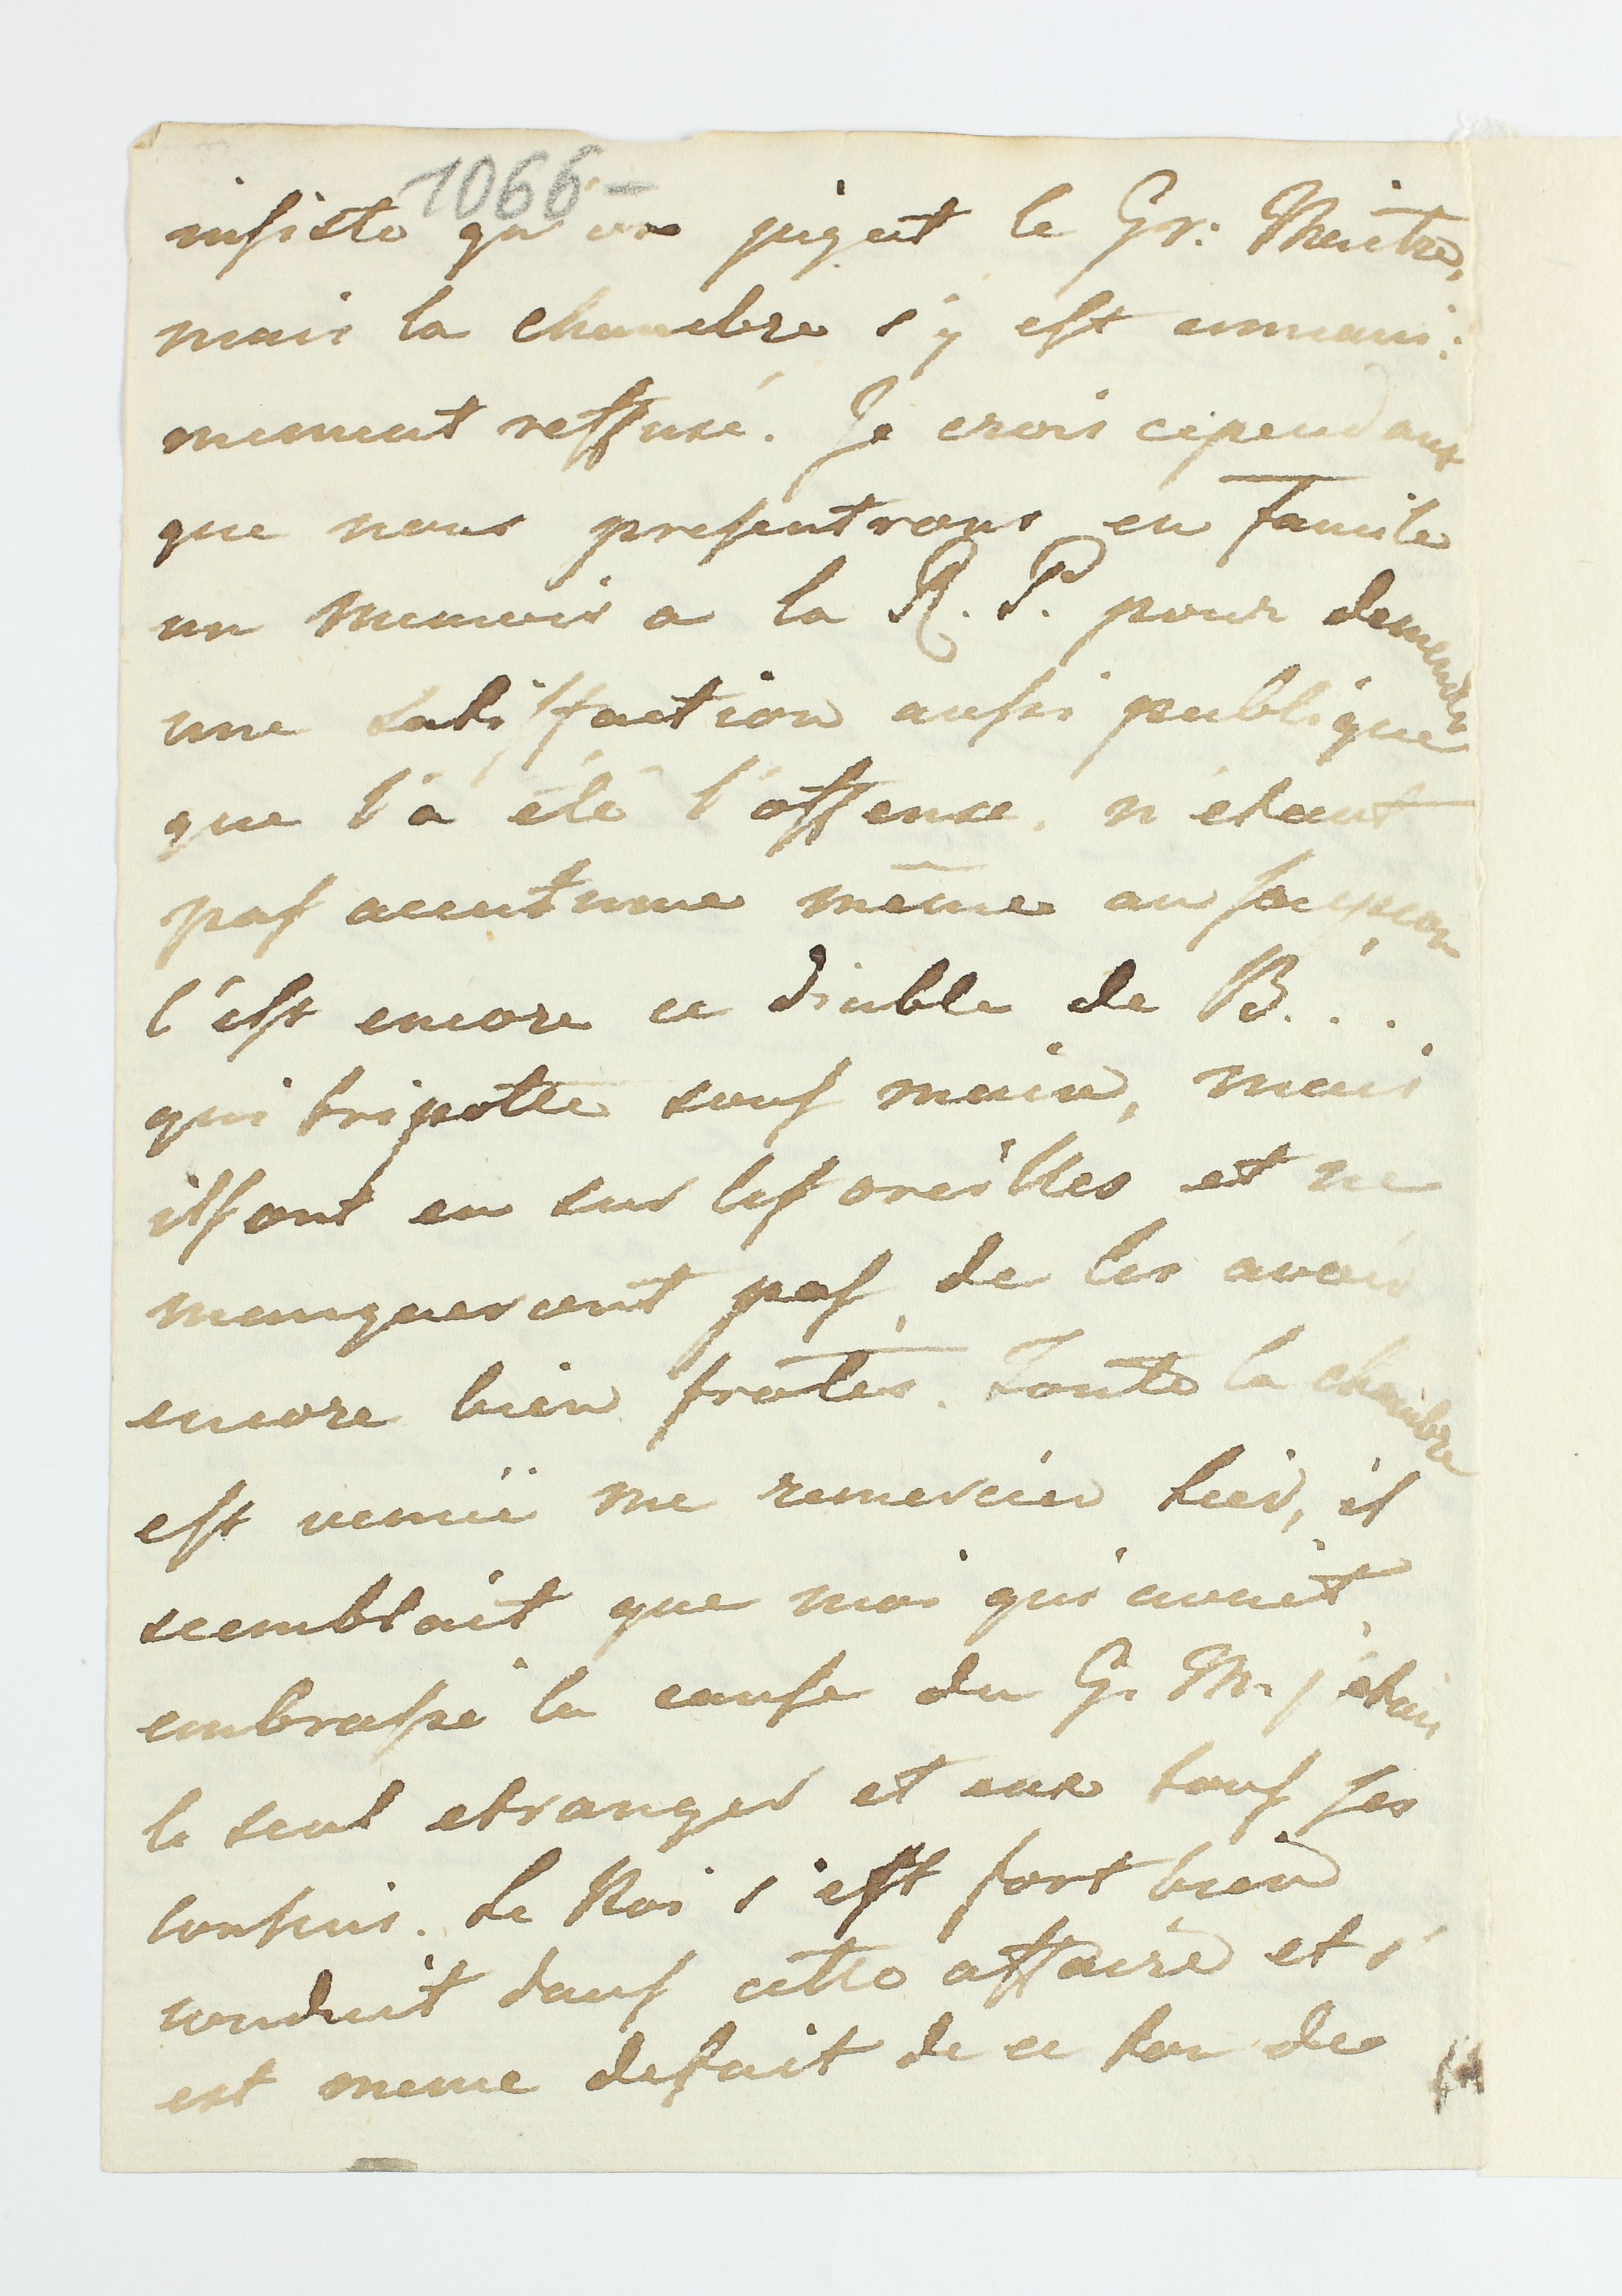 1066-
insisté qu'on jugeat le Gr: Maitre,
mais la chambre s'y est unnani:
mement reffusé. Je crois cependant
que nous presentrons en Famile
un memoir a la R. P. pour demender
une satisfaction aussi publique
que l'a été l'offense, n'étant
pas acoutume même au soupçon
c'est encore ce diable de B...
qui tripotte sous main, mais
ils ont eu sur les oreilles et ne
menqueront pas de les avoir
encore bien frotés. Toute la chambre
est venuë me remercier hier, il
scemblait que moi qui avait
embrassé la cause du G. M. j'étais
le seul etranger et eux tous ses
consins. Le Roi s'est fort bien
conduit dans cette affaire et s'
est meme defait de ce ton de